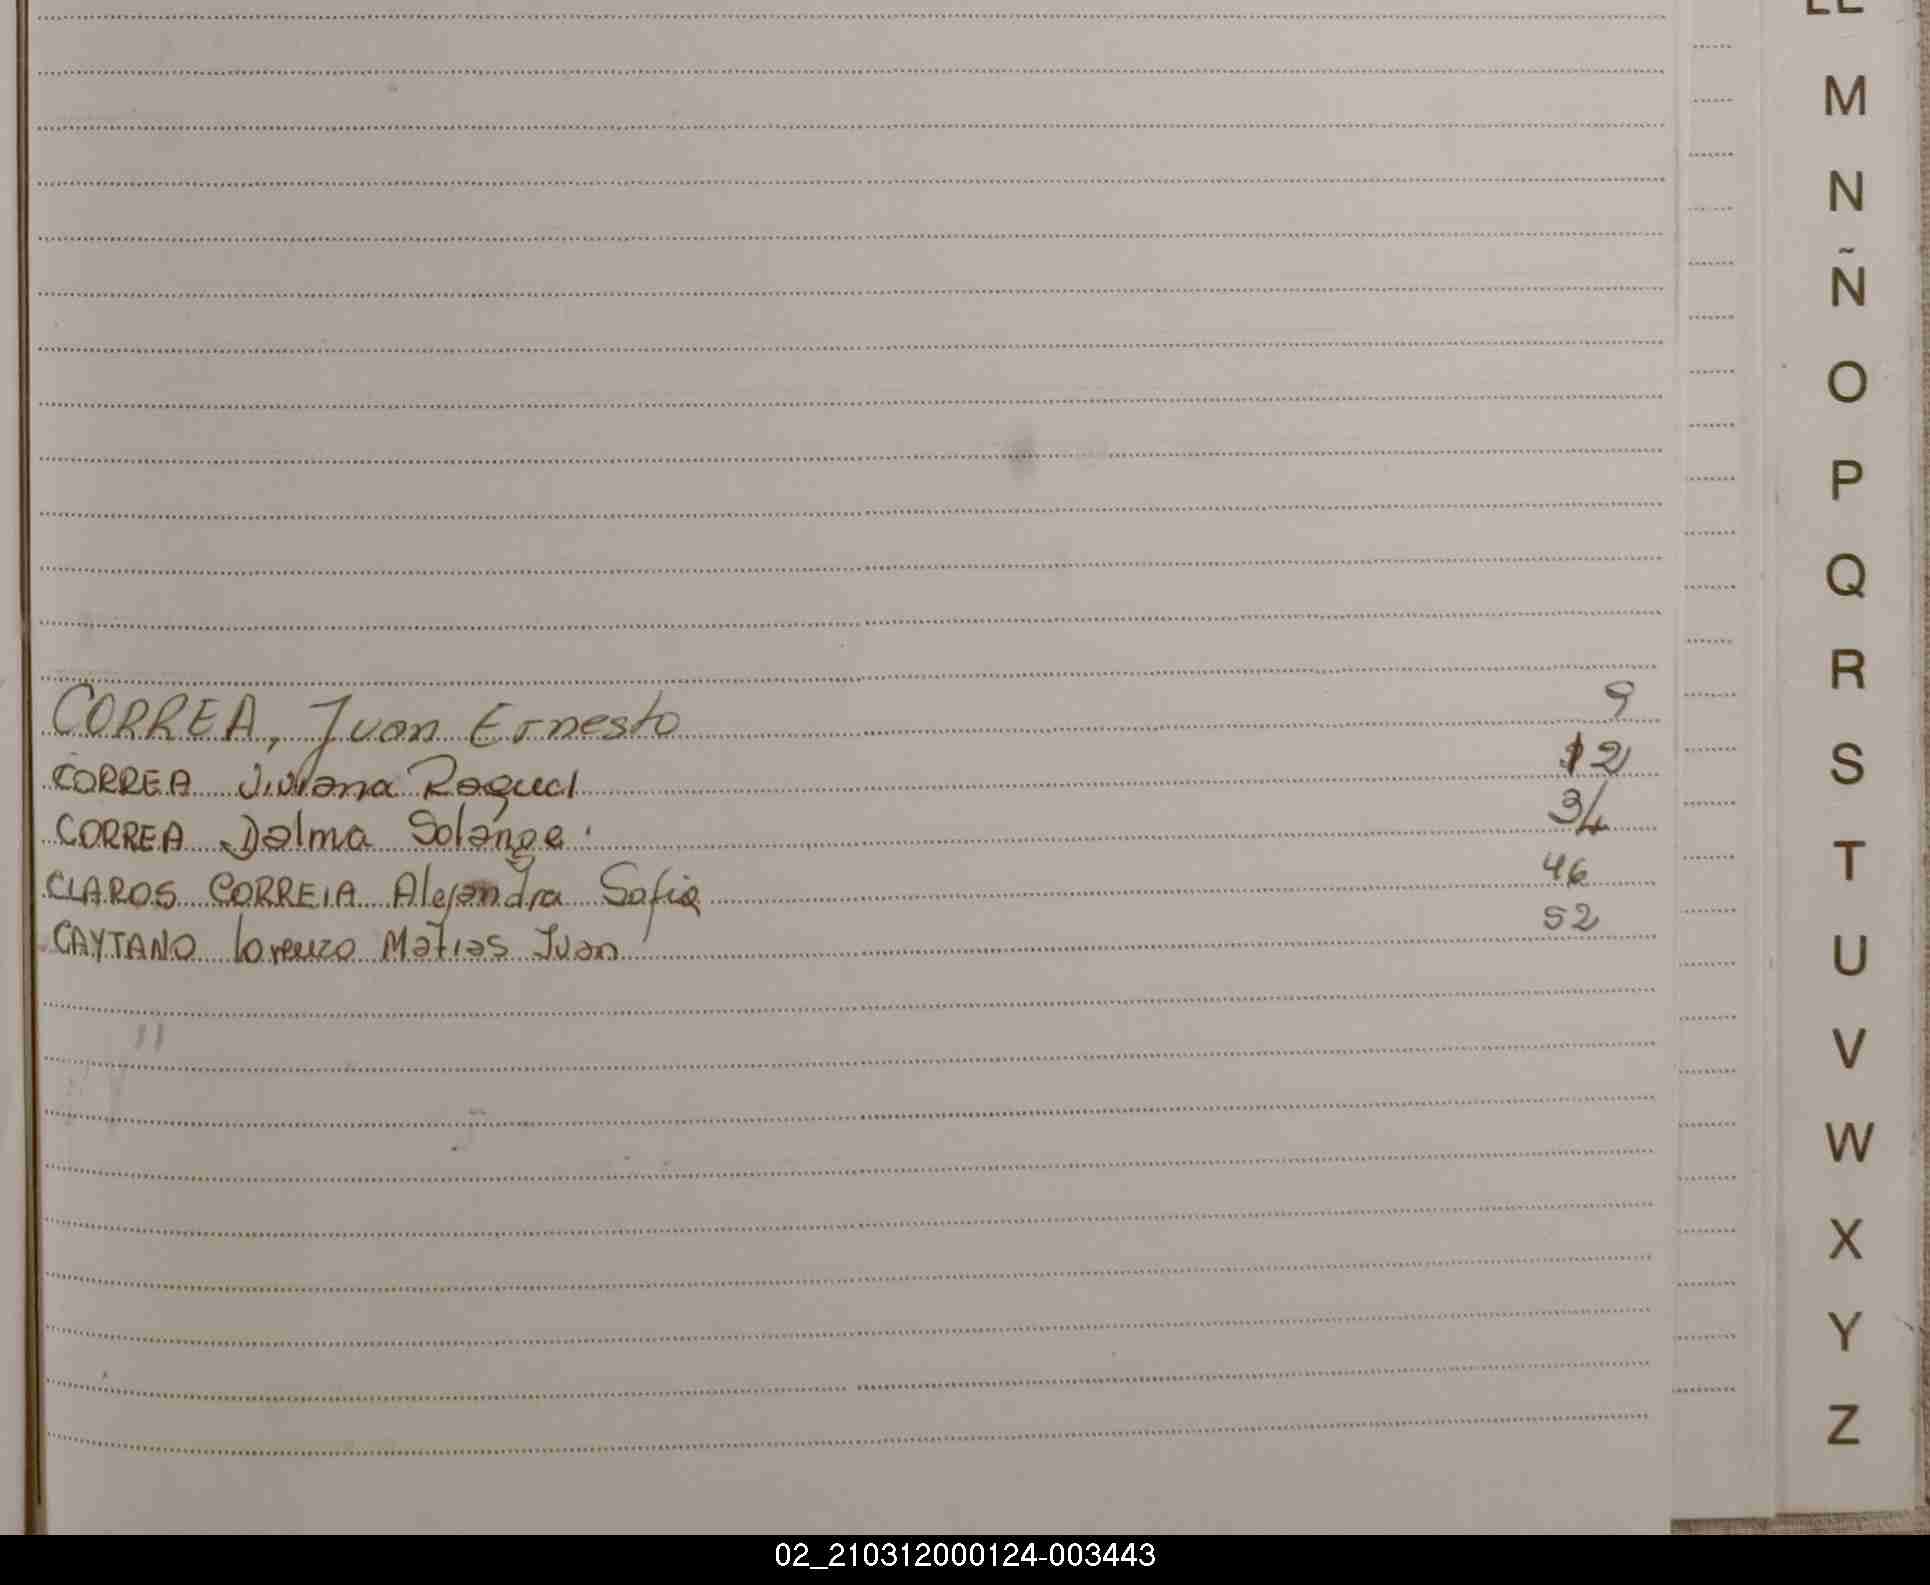 LL
M
N
Ñ
O
P
Q
R
S
T
U
V
W
X
Y
Z
CORREA, Juan Ernesto 9
CORREA Viviana Raquel 12
CORREA Dalma Solange. 34
CLAROS CORREIA Alejandra Sofia 46
CAYTANO Lorenzo Matias Juan 52
02_210312000124-003443